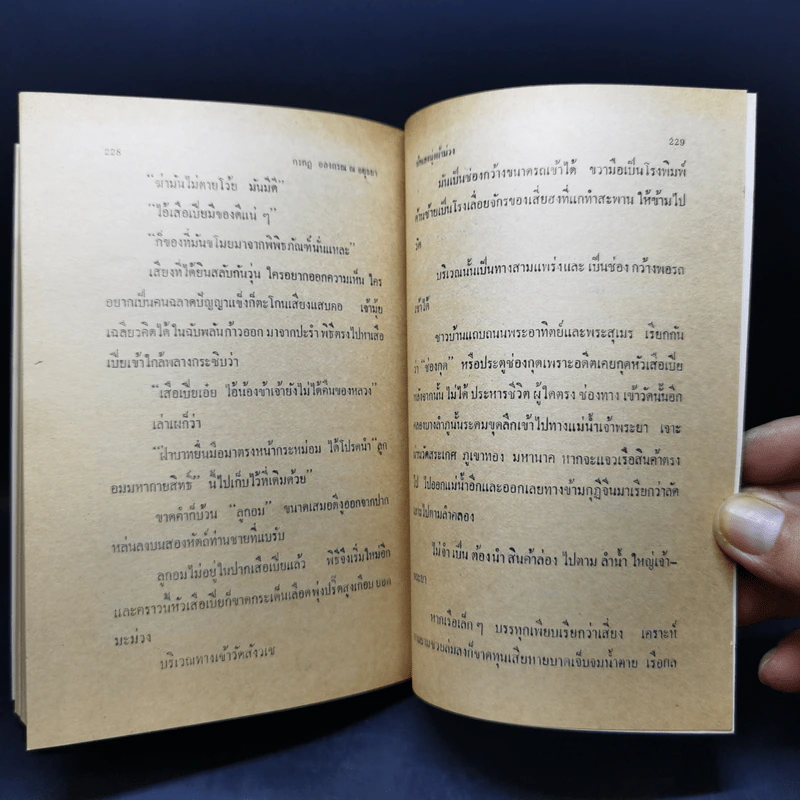 228
กรกฎ อลงกรณ ณ อยุธยา
“ฆ่ามันไม่ตายโว้ย มันมีดี”
“ไอ้เสือเปียมีของดีแน่ ๆ”
“ก็ของที่มันขโมยมาจากพิพิธภัณฑ์นั่นแหละ”
เสียงที่ได้ยินสลับกันวุ่น ใครอยากออกความเห็น ใคร
อยากเป็นคนฉลาดปัญญาแข็งก็ตะโกนเสียงแสบคอ เข้ามุ้ย
เฉลียวคิดได้ ในฉับพลันก้าวออก มาจากปะรำ พิธีตรงไปหาเสือ
เปียเข้าใกล้พลางกระซิบว่า
“เสือเปียเอ๋ย ไอ้น้องข้าเจ้ายังไม่ได้คืนของหลวง”
เล่าเผก็ว่า
“ฝ่าบาทยื่นมือมาตรงหน้ากระหม่อม ได้โปรดนำ “ลูก
อมมหากายสิทธิ์” นี้ไปเก็บไว้ที่เดิมด้วย”
ขาดคำก็บ้วน “ลูกอม” ขนาดเสมอตีงูออกจากปาก
หล่นลงบนสองหัตถ์ท่านชายที่แบรับ
ลูกอมไม่อยู่ในปากเสือเปียแล้ว พิธีจึงเริ่มใหม่อีก
และคราวนี้หัวเสือเปียก็ขาดกระเด็นเลือดพุ่งปรี๊ดสูงเกือบ ยอก
มะม่วง
บริเวณทางเข้าวัดสังเวช
229
มันเป็นช่องกว้างขนาดรถเข้าได้ ขวามือเป็นโรงพิมพ์
ด้านซ้ายเป็นโรงเลื่อยจักรของเสี่ยฮงที่แกทำสะพาน ให้ข้ามไป
วัด
บริเวณนั้นเป็นทางสามแพร่งและ เป็นช่อง กว้างพอรถ
เข้าได้
ชาวบ้านแถบถนนพระอาทิตย์และพระสุเมร เรียกกัน
ว่า “ช่องกุด” หรือประตูช่องกุดเพราะอดีตเคยกุดหัวเสือเปีย
หลังจากนั้น ไม่ได้ ประหารชีวิต ผู้ใดตรง ช่องทาง เข้าวัดนั้นอีก
คลองบางลำภูนั้นระดมขุดลึกเข้าไปทางแม่น้ำเจ้าพระยา เจาะ
ผ่านวัดสระเกศ ภูเขาทอง มหานาค หากจะแจวเรือสินค้าตรง
ไป ไปออกแม่น้ำอีกและออกเลยทางข้ามกุฎีจีนมาเรียกว่าลัด
เลาะไปตามลำคลอง
ไม่จำ เป็น ต้องนำ สินค้าล่อง ไปตาม ลำน้ำ ใหญ่เจ้า–
พระยา
หากเรือเล็ก ๆ บรรทุกเพียบเรียกว่าเสี่ยง เคราะห์
ล่มลงก็ขาดทุนเสียหายบาดเจ็บจมน้ำตาย เรือกล